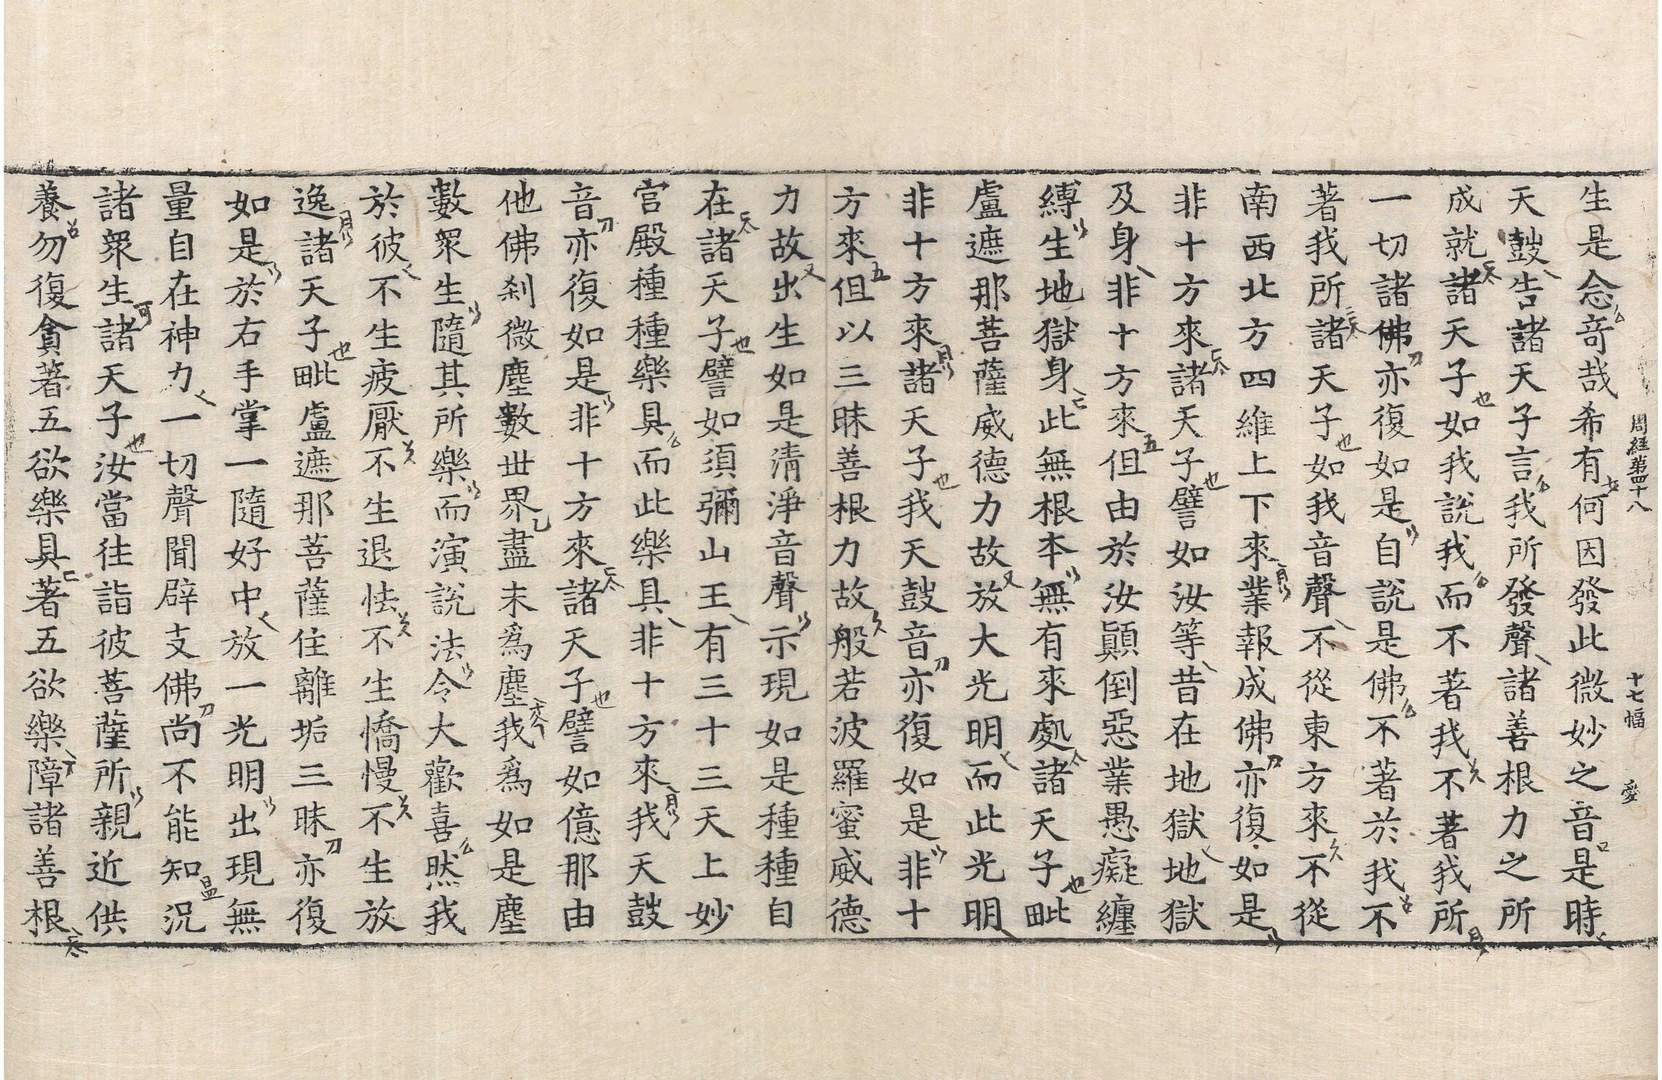 周經第四十八 十七幅 愛
生是念奇哉希有何因發此微妙之音是時
天鼓告諸天子言我所發聲諸善根力之所
成就諸天子如我說我而不著我不著我所
一切諸佛亦復如是自說是佛不著於我不
著我所諸天子如我音聲不從東方來不從
南西北方四維上下來業報成佛亦復如是
非十方來諸天子譬如汝等昔在地獄地獄
及身非十方來但由於汝顚倒惡業愚癡纏
縛生地獄身此無根本無有來處諸天子毗
盧遮那菩薩威德力故放大光明而此光明
非十方來諸天子我天鼓音亦復如是非十
方來但以三昧善根力故般若波羅蜜威德
力故出生如是清淨音聲示現如是種種自
在諸天子譬如須彌山王有三十三天上妙
宮殿種種樂具而此樂具非十方來我天鼓
音亦復如是非十方來諸天子譬如億那由
他佛刹微塵數世界盡未爲塵我爲如是塵
數衆生隨其所樂而演說法令大歡喜然我
於彼不生疲厭不生退怯不生憍慢不生放
逸諸天子毗盧遮那菩薩住離垢三昧亦復
如是於右手掌一隨好中放一光明出現無
量自在神力一切聲聞辟支佛尚不能知況
諸衆生諸天子汝當往詣彼菩薩所親近供
養勿復貪著五欲樂具著五欲樂障諸善根